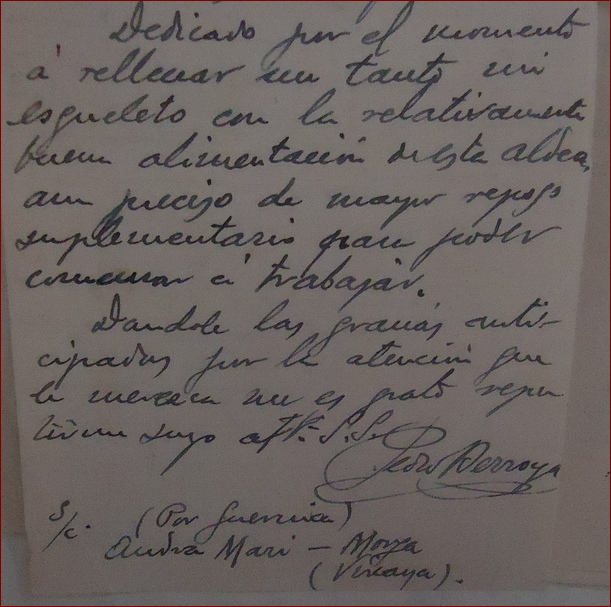 Dedicado por el momento
á rellenar un tanto mi
esqueleto con la relativamente
buena alimentación de esta aldea,
aun preciso de mayor reposo
suplementario para poder
comenzar á trabajar.
Dandole las gracias anti-
cipadas por la atención que
le merezca me es grato repe
tirme suyo aff.º S.S.
Pedro Berroya
S/c. (Por Guernica)
Andra Mari - Morga
(Vizcaya).